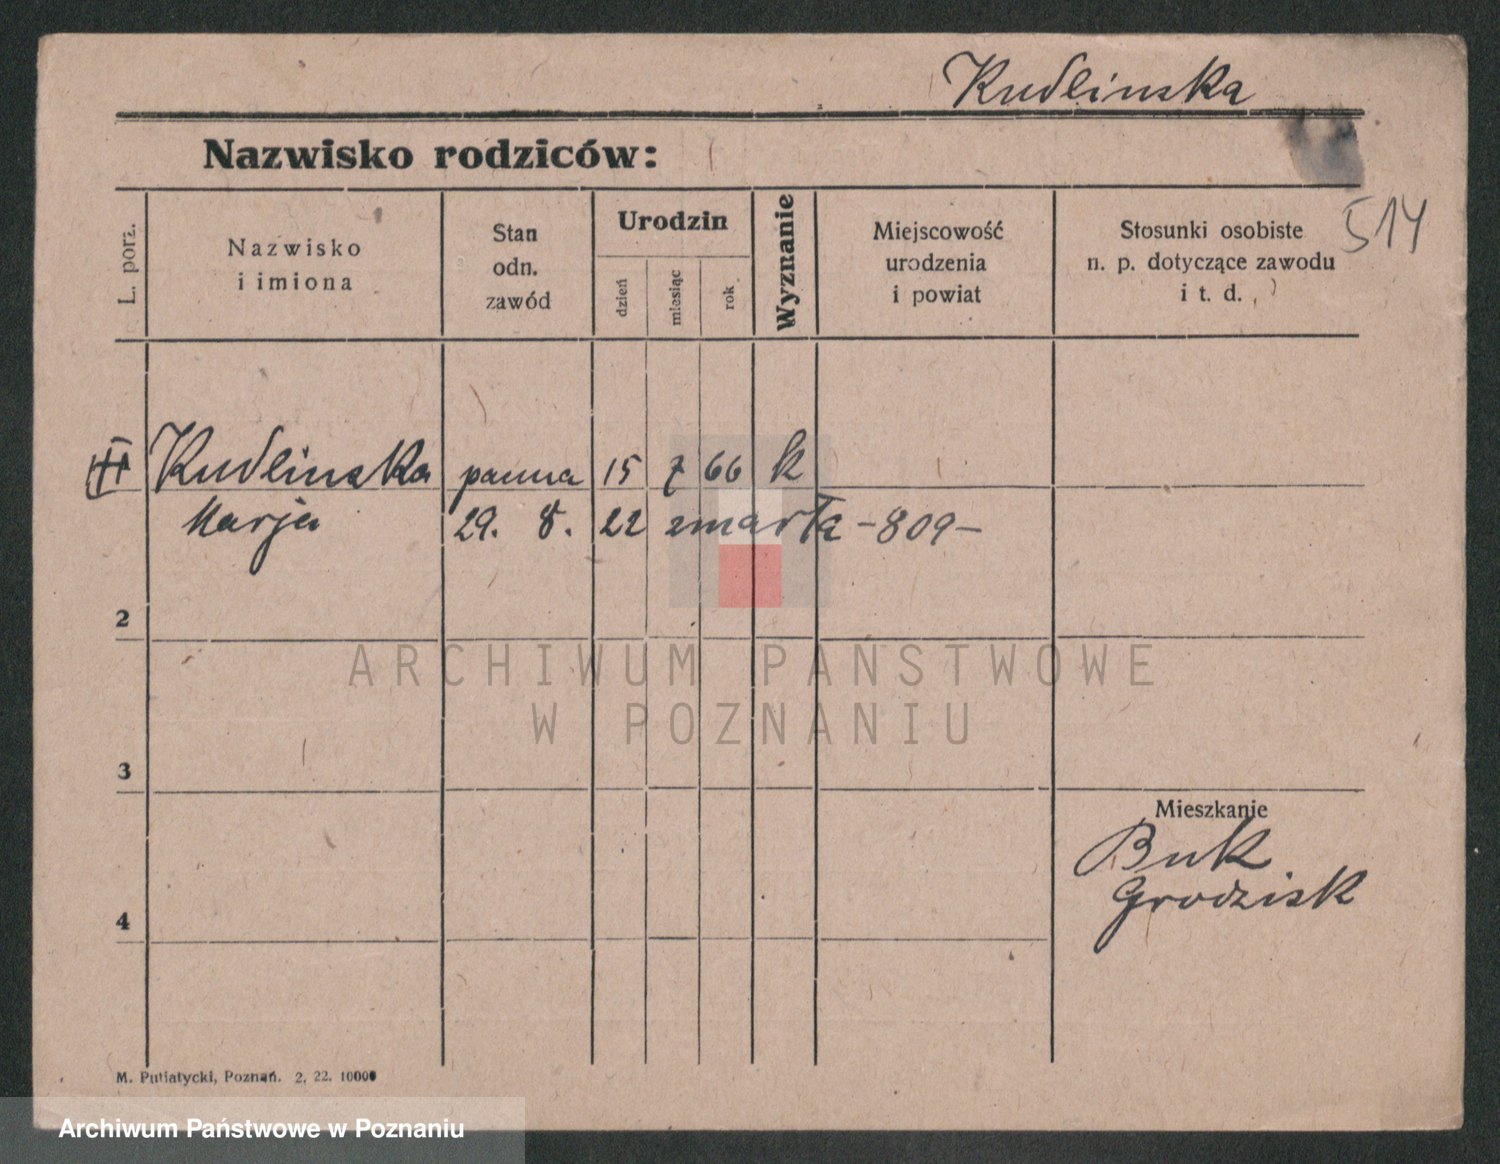 Kudlinska
Nazwisko rodziców:
514
L. porz.
Nazwisko
i imiona
Stan
odn.
zawód
Urodzin
dzień
miesiąc
rok
Wyznanie
Miejscowość
urodzenia
i powiat
Stosunki osobiste
n. p. dotyczące zawodu
i t. d.
Kudlinska panna 15 7 66 k
Marja 29. 8. 22 zmarła -809-
2
ARCHIWUM PAŃSTWOWE
W POZNANIU
3
Mieszkanie
Buk
Grodzisk
4
M. Putiatycki, Poznań. 2. 22. 10000
Archiwum Państwowe w Poznaniu